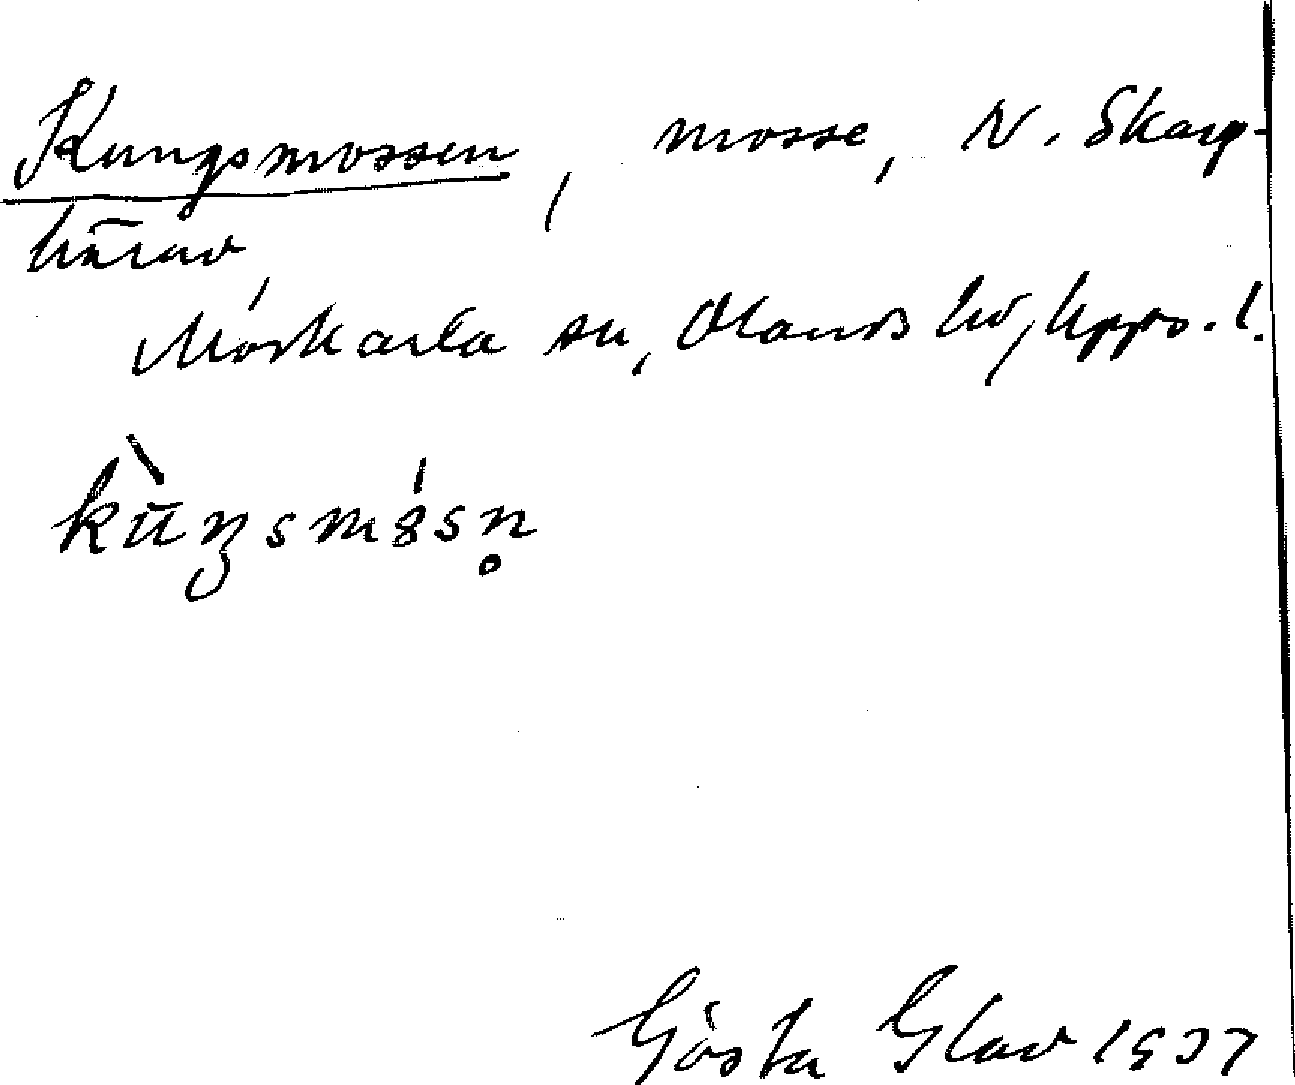 Kungsmossen, mosse, N. Skarp-
härad
Morkarla sn, Olands hd, Upps. l.
kùŋsmósn̥
Gösta Glad 1937